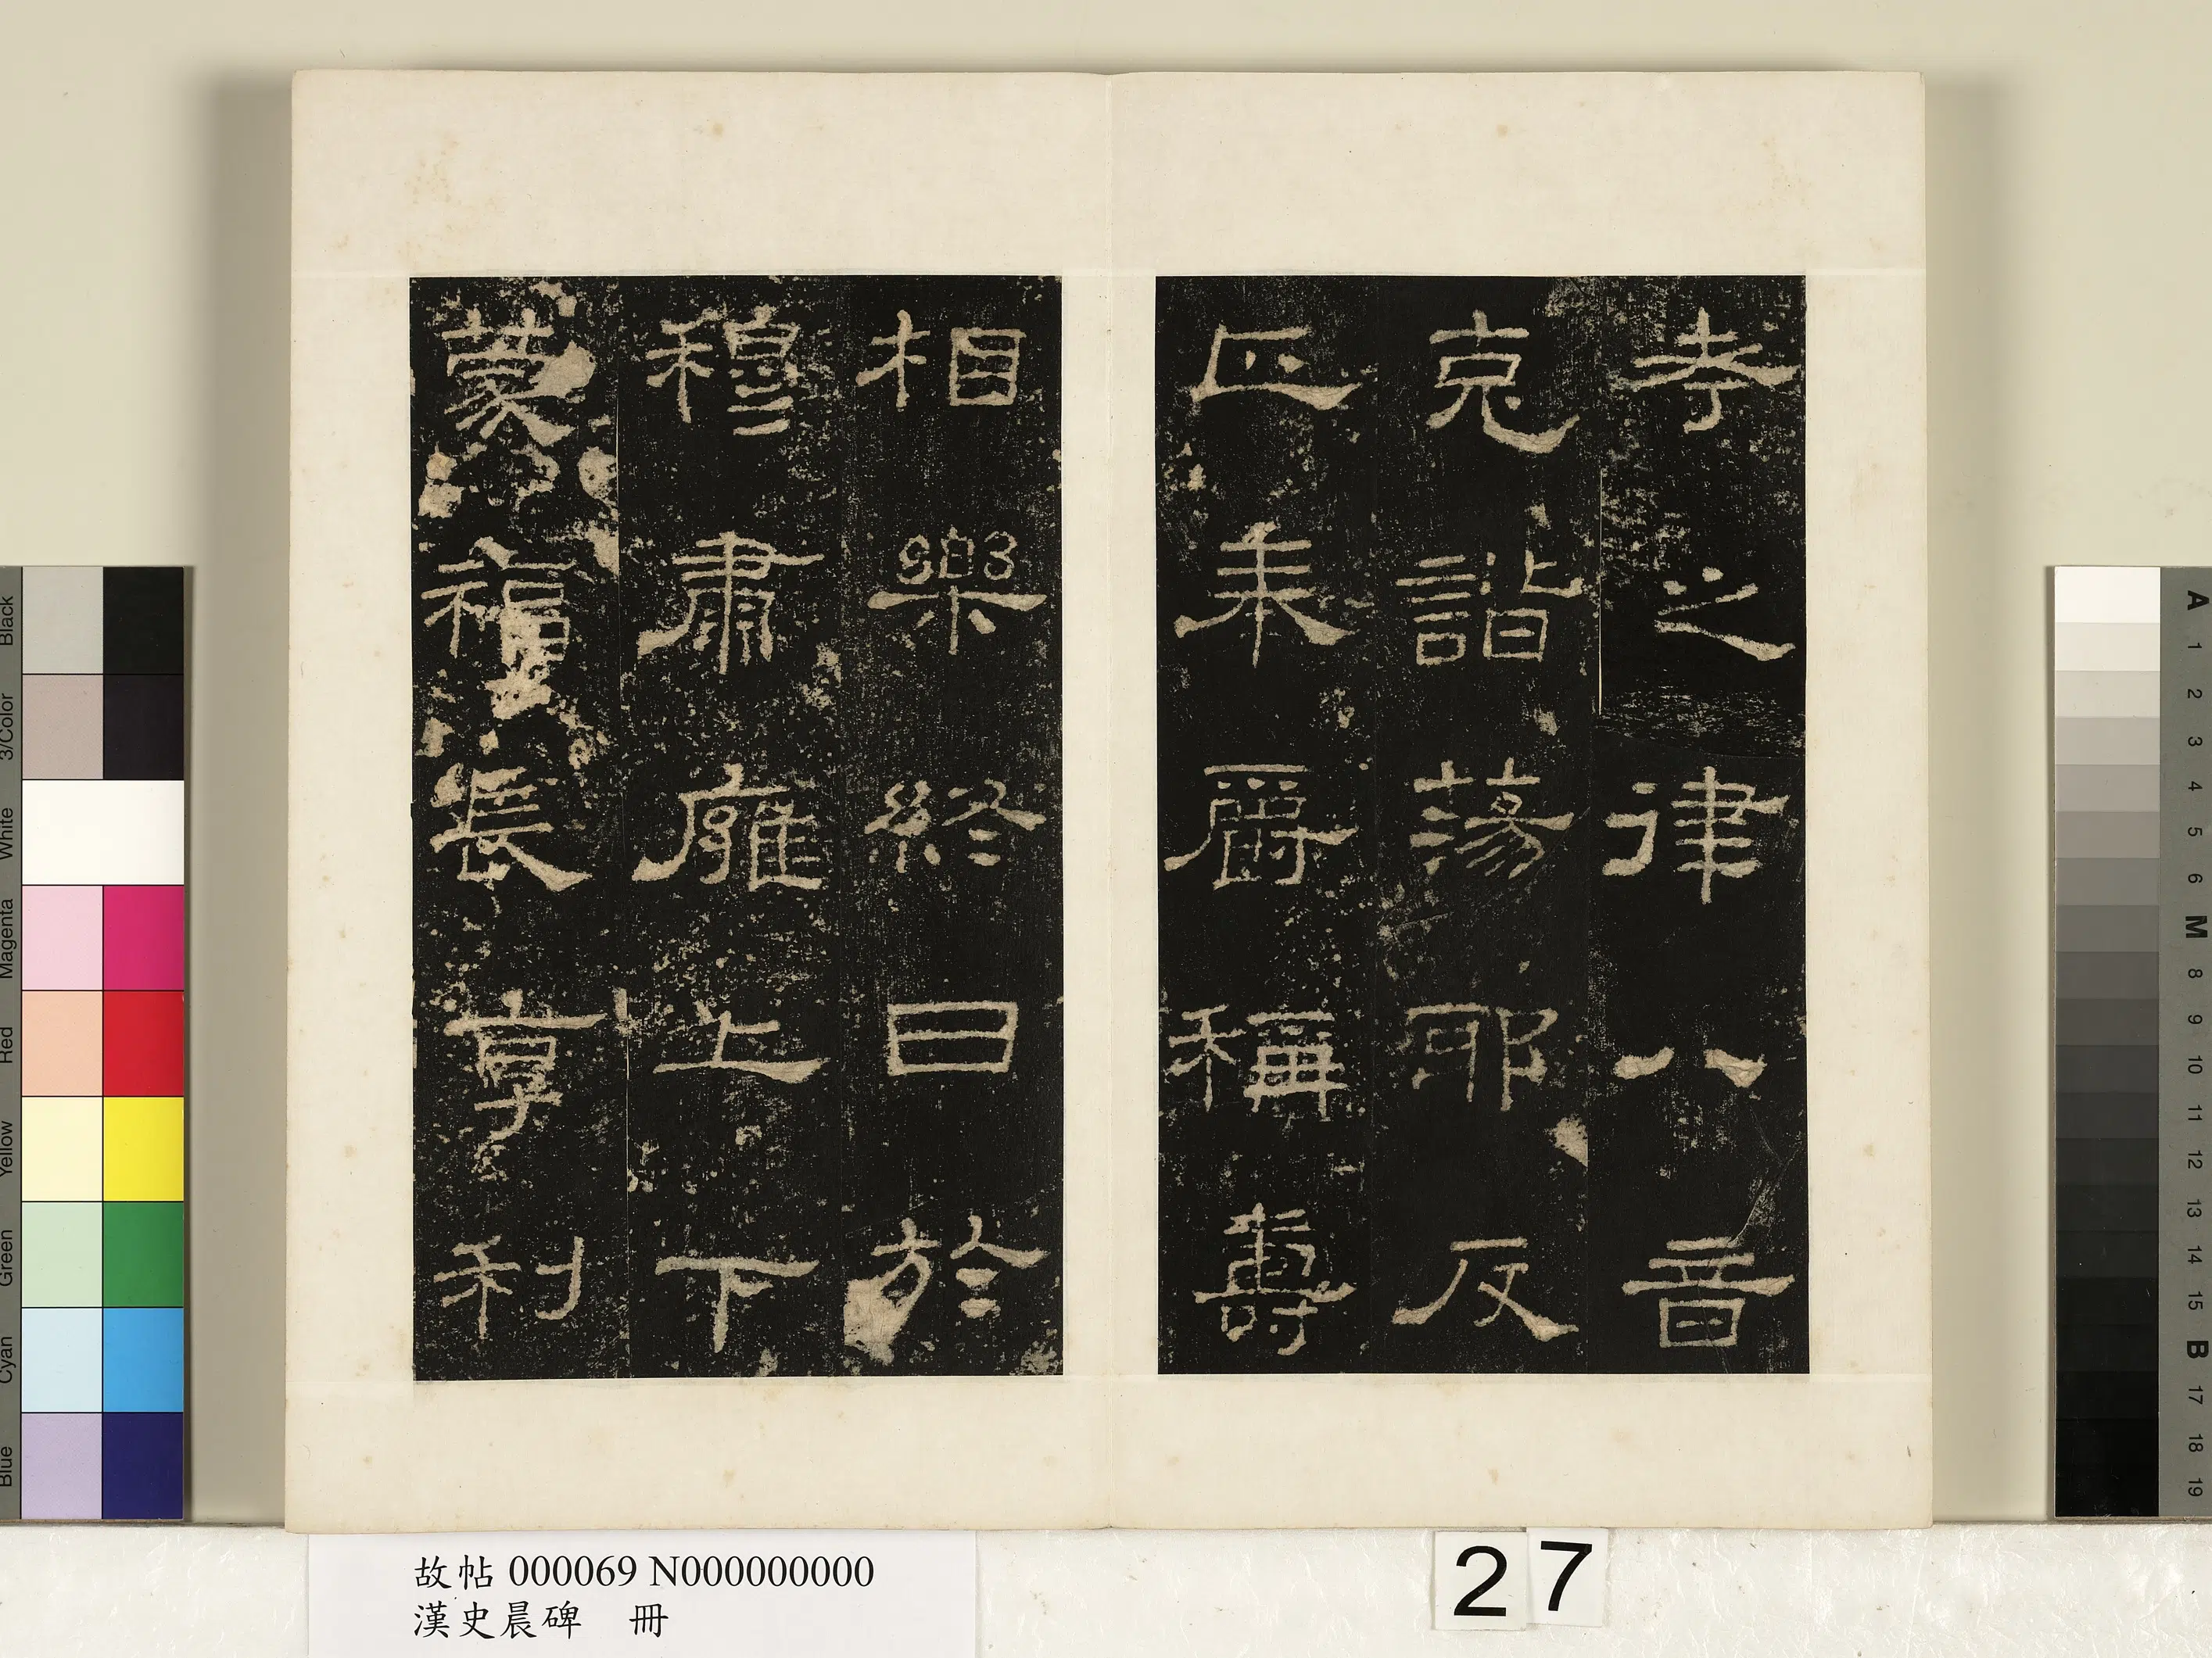 考之律八音
克諧蕩邪反
正奉爵稱壽
相樂終日於
穆肅雍上下
蒙福長享利
故帖 000069 N000000000
漢史晨碑 冊
27
Blue
Cyan
Green
Yellow
Red
Magenta
White
3/Color
Black
A
1
2
3
4
5
6
M
8
9
10
11
12
13
14
15
B
17
18
19